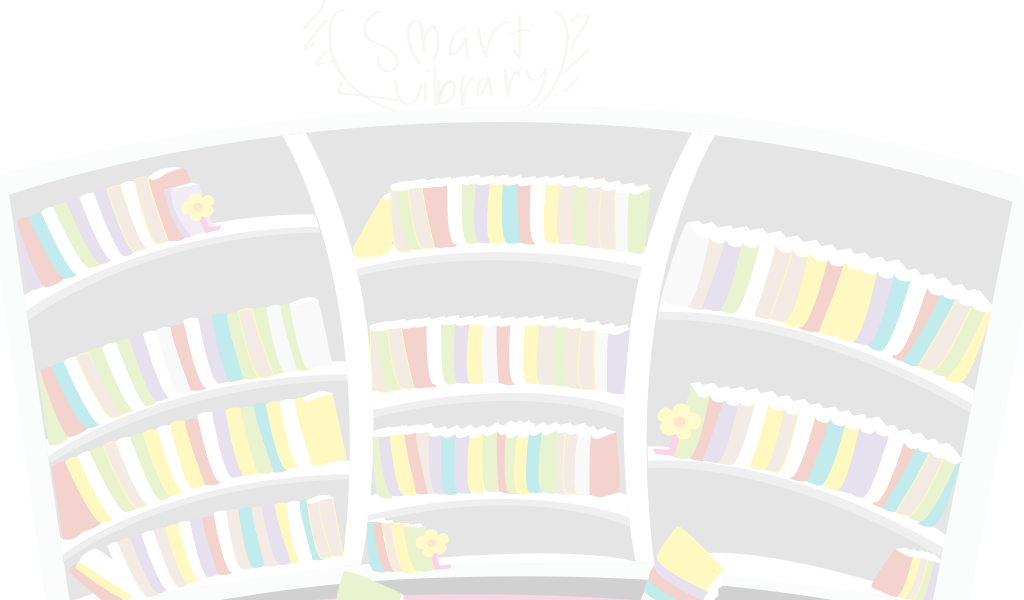 Smart
Library